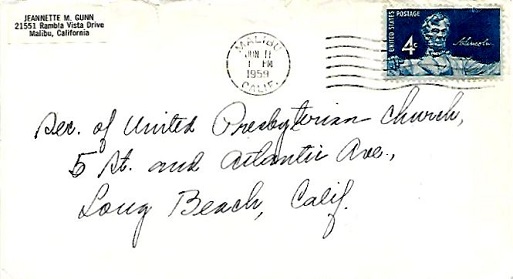 JEANNETTE M. GUNN
21551 Rambla Vista Drive
Malibu, California
MALIBU
JUN 11
1 PM
1959
CALIF.
UNITED STATES POSTAGE
4c
A. Lincoln
Sec. of United Presbyterian Church,
5 St. and Atlantic Ave.,
Long Beach, Calif.